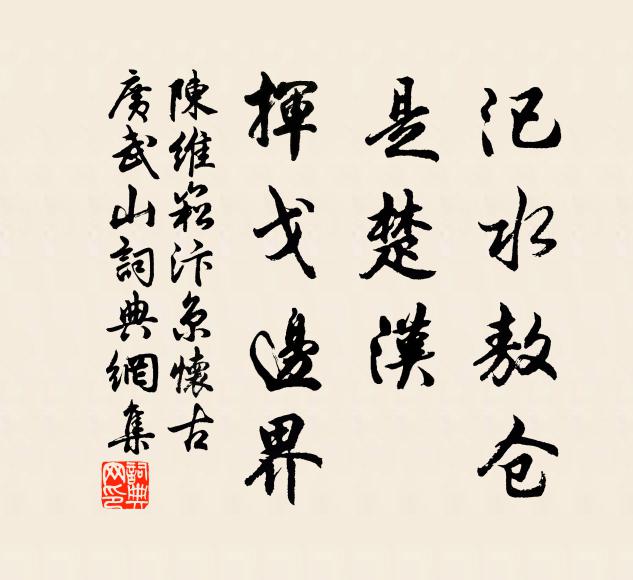 汜水敖仓
是楚漢
揮戈邊界
陳維崧汴京懷古
廣武山詞典網集
詞典网印